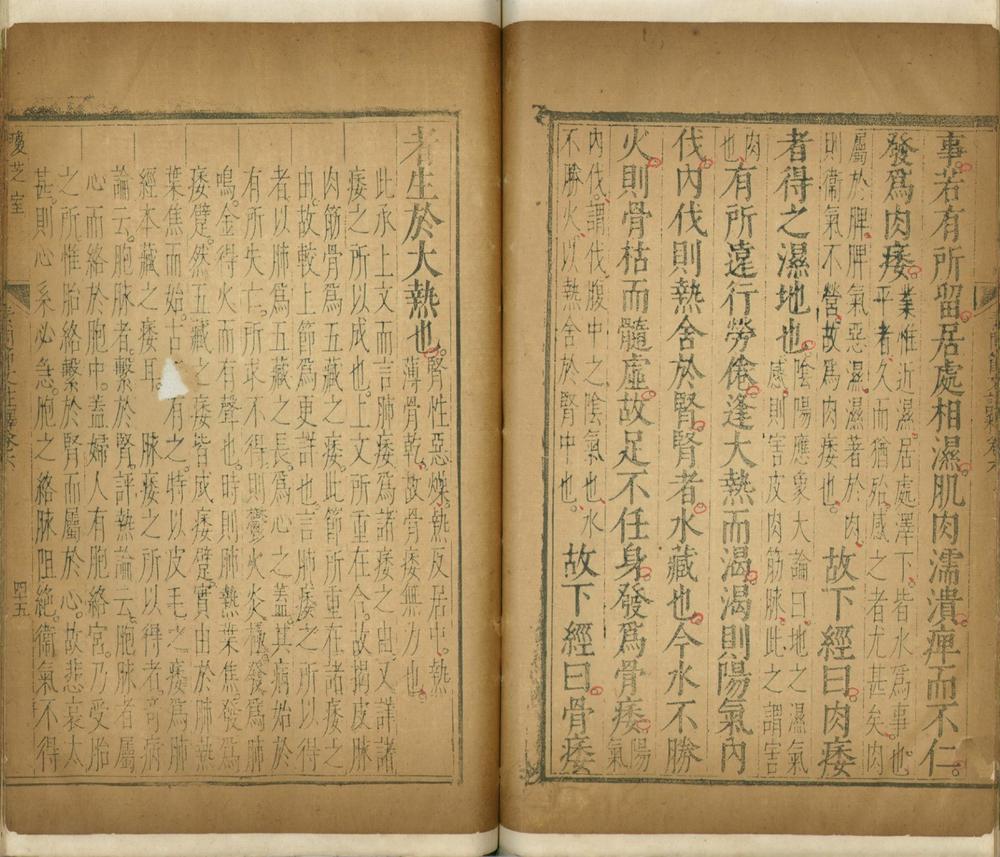 事。若有所留。居處相濕。肌肉濡潰。痺而不仁。
發爲肉痿。業惟近濕。居處澤下。皆水爲事也。
平者久而猶殆。感之者尤甚矣。肉
屬於脾。脾氣惡濕。濕著於肉。
則衛氣不營。故爲肉痿也。故下經曰。肉痿
者得之濕地也。陰陽應象大論曰。地之濕氣
感。則害皮肉筋脉。此之謂害
肉
也。有所遠行勞倦。逢大熱而渴。渴則陽氣內
伐。內伐則熱舍於腎。腎者水藏也。今水不勝
火。則骨枯而髓虛。故足不任身。發爲骨痿。陽
氣
內伐。謂伐腹中之陰氣也。水
不勝火。以熱舍於腎中也。故下經曰。骨痿
者生於大熱也。腎性惡燥。熱反居中。熱
薄骨乾。故骨痿無力也。
此承上文而言肺痿爲諸痿之由。又詳諸
痿之所以成也。上文所重在合。故揭皮脉
肉筋骨爲五藏之痿。此節所重在諸痿之
由。故較上節爲更詳也。言肺痿之所以得
者。以肺爲五藏之長。爲心之蓋。其病始於
有所失亡。所求不得。則鬱火炎熾。發爲肺
鳴。金得火而有聲也。時則肺熱葉焦。發爲
痿躄。然五藏之痿。皆成痿躄。實由於肺熱
葉焦而始。古 有之。特以皮毛之痿爲肺
經本藏之痿耳。 脉痿之所以得者。奇病
論云。胞脉者。繫於腎。評熱論云。胞脉者屬
心而絡於胞中。蓋婦人有胞絡宮。乃受胎
之所。惟胎絡繫於腎而屬於心。故悲哀太
甚。則心系必急。胞之絡脉阻絶。衛氣不得
瓊芝室
四五